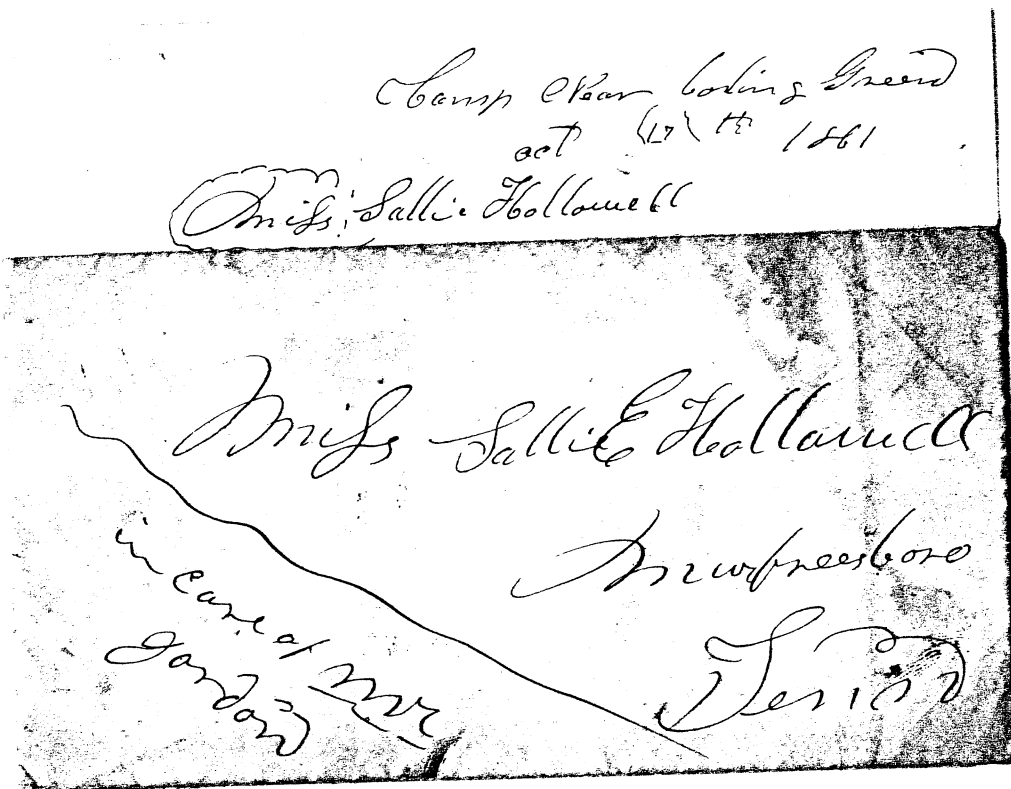 Camp Near boling Greend
oct (17) th 1861
Miss Sallie Hollowell
Miss Sallie E Hollowell
Murfreesboro
Tennd
in care of Mr
Jordon